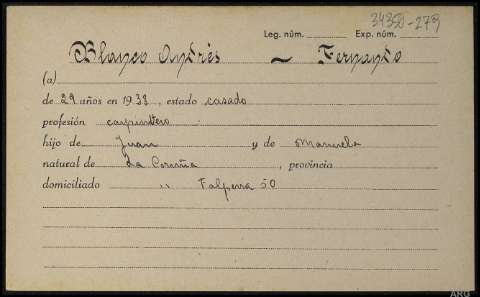 34350-279
Leg. núm. Exp. núm.
Blanco Andrés ~ Fernando
(a)
de 29 años en 1933, estado casado
profesión carpintero
hijo de Juan y de Manuela
natural de La Coruña, provincia
domiciliado " Falperra 50
ARG